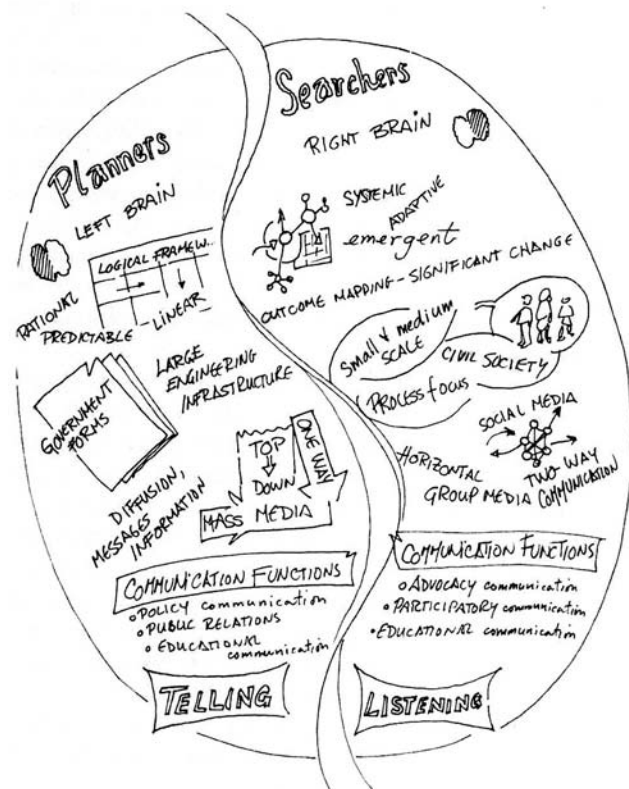 Planners
LEFT BRAIN
LOGICAL FRAMEW...
LINEAR
RATIONAL
PREDICTABLE
LARGE
ENGINEERING
INFRASTRUCTURE
GOVERNMENT
FORMS
TOP
DOWN
ONE WAY
MASS MEDIA
DIFFUSION,
MESSAGES
INFORMATION
COMMUNICATION FUNCTIONS
POLICY communication
PUBLIC RELATIONS
EDUCATIONAL
communication
TELLING
Searchers
RIGHT BRAIN
SYSTEMIC
ADAPTIVE
emergent
OUTCOME MAPPING - SIGNIFICANT CHANGE
Small & medium
SCALE
CIVIL SOCIETY
PROCESS focus
SOCIAL MEDIA
HORIZONTAL
GROUP MEDIA
TWO-WAY
COMMUNICATION
COMMUNICATION FUNCTIONS
ADVOCACY communication
PARTICIPATORY communication
EDUCATIONAL communication
LISTENING